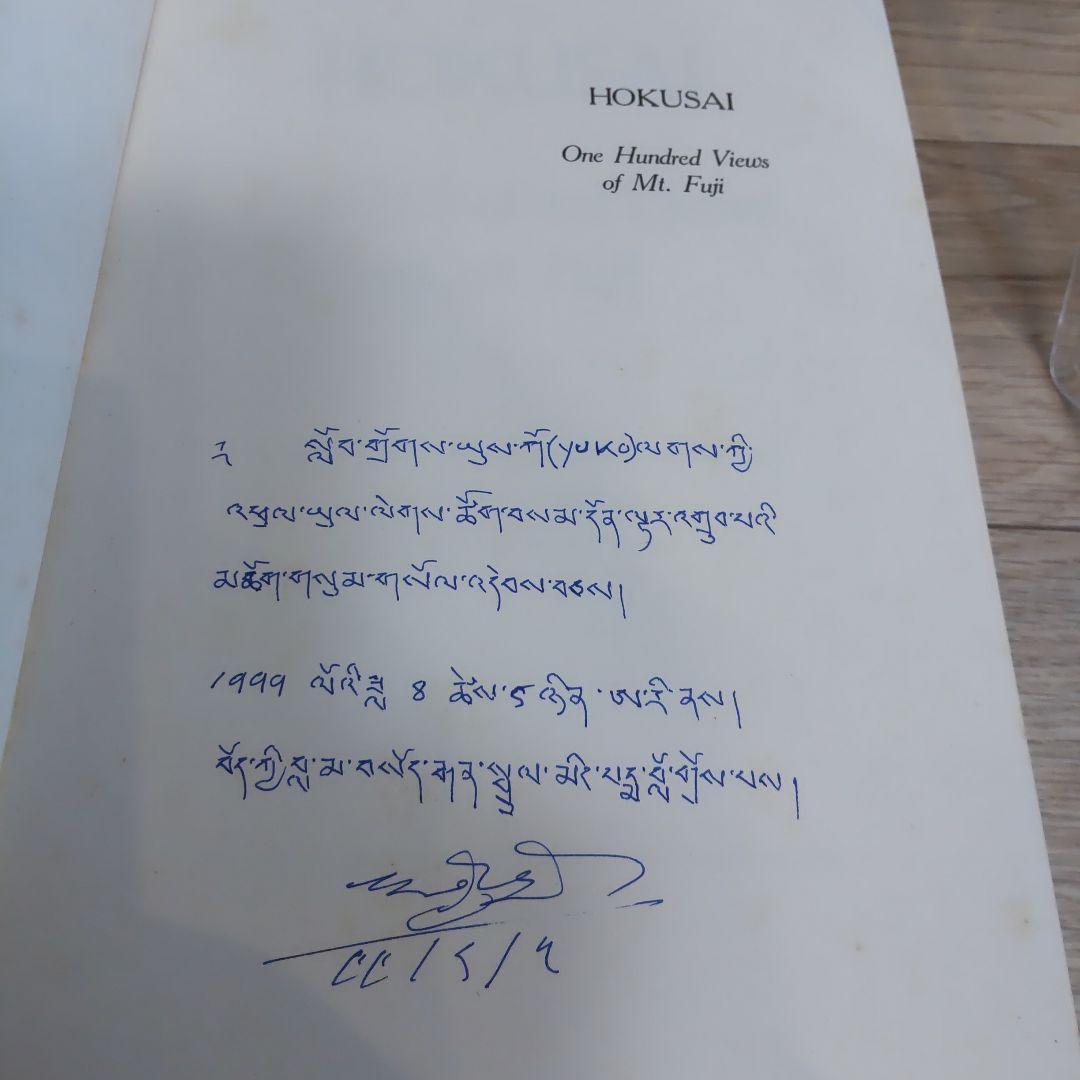 HOKUSAI
One Hundred Views
of Mt. Fuji
༄ སློབ་གྲོགས་ཡུས་ཀོ(yuko)ལགས་ཀྱི་
འཕྲལ་ཡུལ་ལེགས་ཚོགས་བསམ་དོན་ལྟར་འགྲུབ་པའི་
མཆོག་གསུམ་གསོལ་འདེབས་བཅས།
1999 ལོའི་ཟླ 8 ཚེས་5ཉིན་ཨ་རི་ནས།
བོད་ཀྱི་བླ་མ་བསོད་རྒན་སྤྲུལ་མིང་པདྨ་བློ་གྲོས་པས།
༩༩/༨/༥